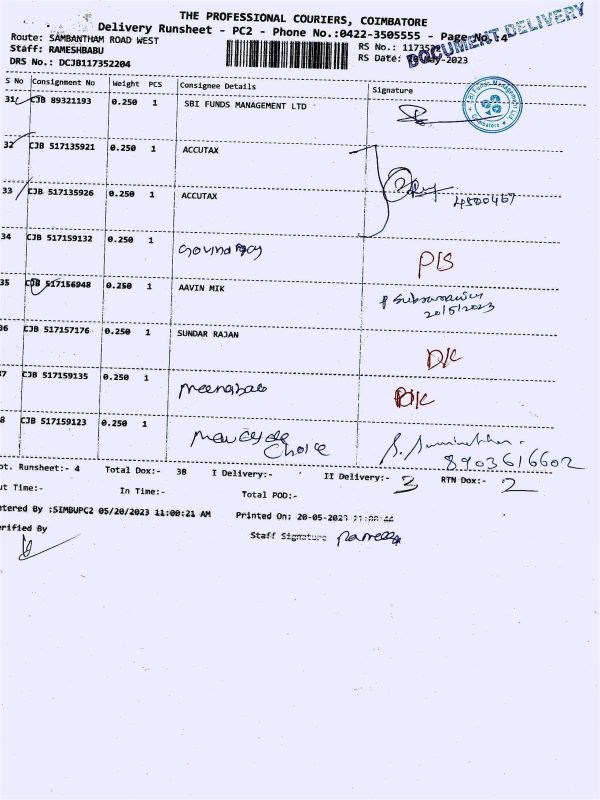 THE PROFESSIONAL COURIERS, COIMBATORE
Delivery Runsheet - PC2 - Phone No.:0422-3505555 - Page No.:4
DOCUMENT DELIVERY
Route: SAMBANTHAM ROAD WEST
RS No.:
Staff: RAMESHBABU
RS Date: -May-2023
DRS No.: DCJB117352204
S No Consignment No Weight PCS Consignee Details Signature
31 CJB 89321193 0.250 1 SBI FUNDS MANAGEMENT LTD
SBI Funds Management Ltd. Coimbatore
32 CJB 517135921 0.250 1 ACCUTAX
33 CJB 517135926 0.250 1 ACCUTAX
4500467
34 CJB 517159132 0.250 1
35 CJB 517156948 0.250 1 AAVIN MIK
20/5/2023
36 CJB 517157176 0.250 1 SUNDAR RAJAN D/C
37 CJB 517159135 0.250 1 D/C
8 CJB 517159123 0.250 1 Choice
8903616602
ot. Runsheet:- 4 Total Dox:- 38 I Delivery:- II Delivery:- 3 RTN Dox:- 2
ut Time:- In Time:- Total POD:-
ntered By :SIMBUPC2 05/20/2023 11:00:21 AM Printed On: 20-05-2023
erified By
Staff Signature